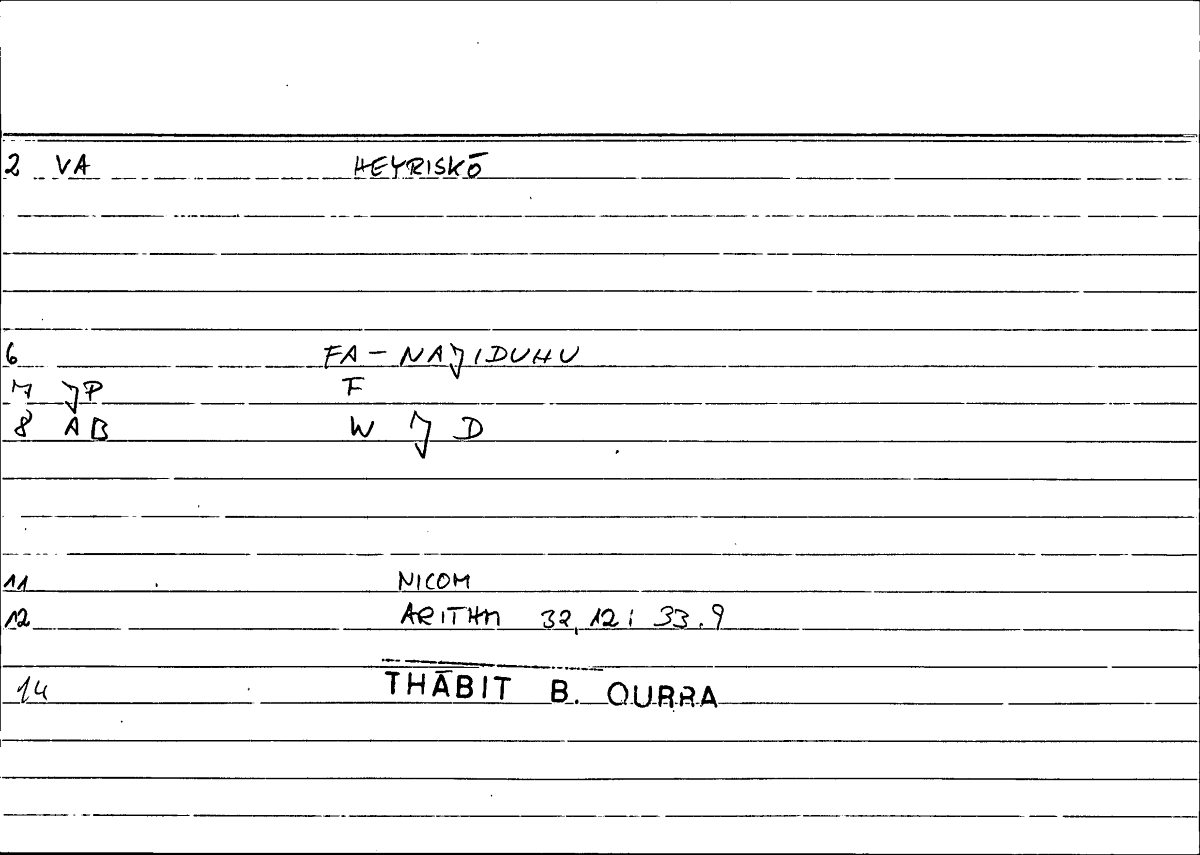 2 VA HEYRISKŌ
6 FA - NAJIDUHU
7 JP F
8 AB W J D
11 NICOM
12 ARITHM 32,12; 33.9
14 THĀBIT B. QURRA